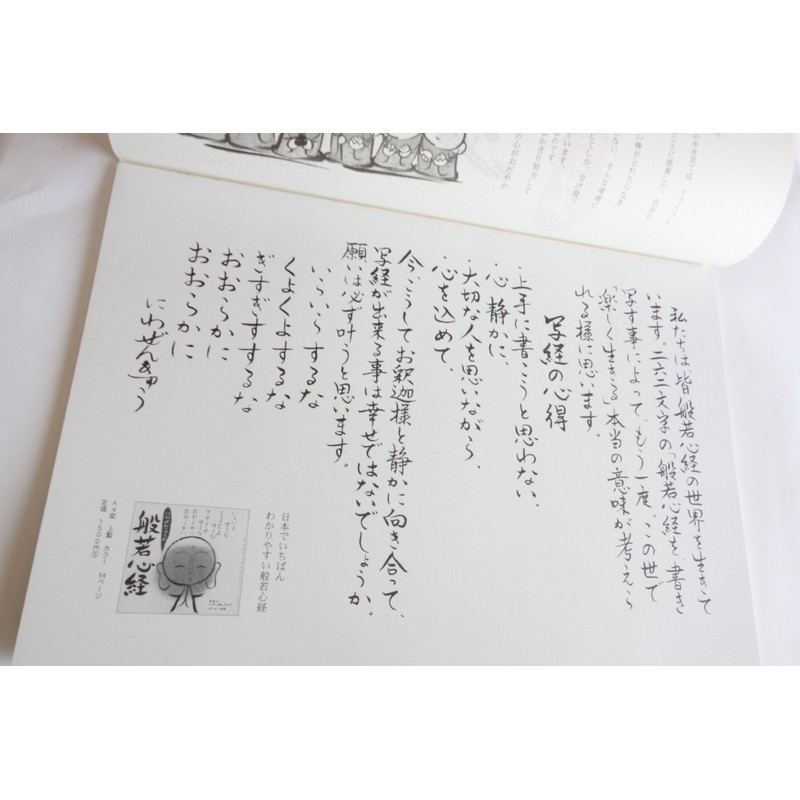 私たちは皆般若心経の世界を生きて
います。二六二文字の「般若心経を、書き
写す事によって、もう一度、この世で
「楽しく生きる」本当の意味が考えら
れる様に思います。
写経の心得
・上手に書こうと思わない、
・心静かに、
・大切な人を思いながら、
・心を込めて、
今、こうしてお釈迦様と静かに向き合って、
写経が出来る事は幸せではないでしょうか。
願いは必ず叶うと思います。
いらいらするな
くよくよするな
ぎすぎすするな
おおらかに
おおらかに
にわぜんきゅう
日本でいちばん
わかりやすい般若心経
般若心経
A4変 上製 カラー 54ページ
定価 1500円